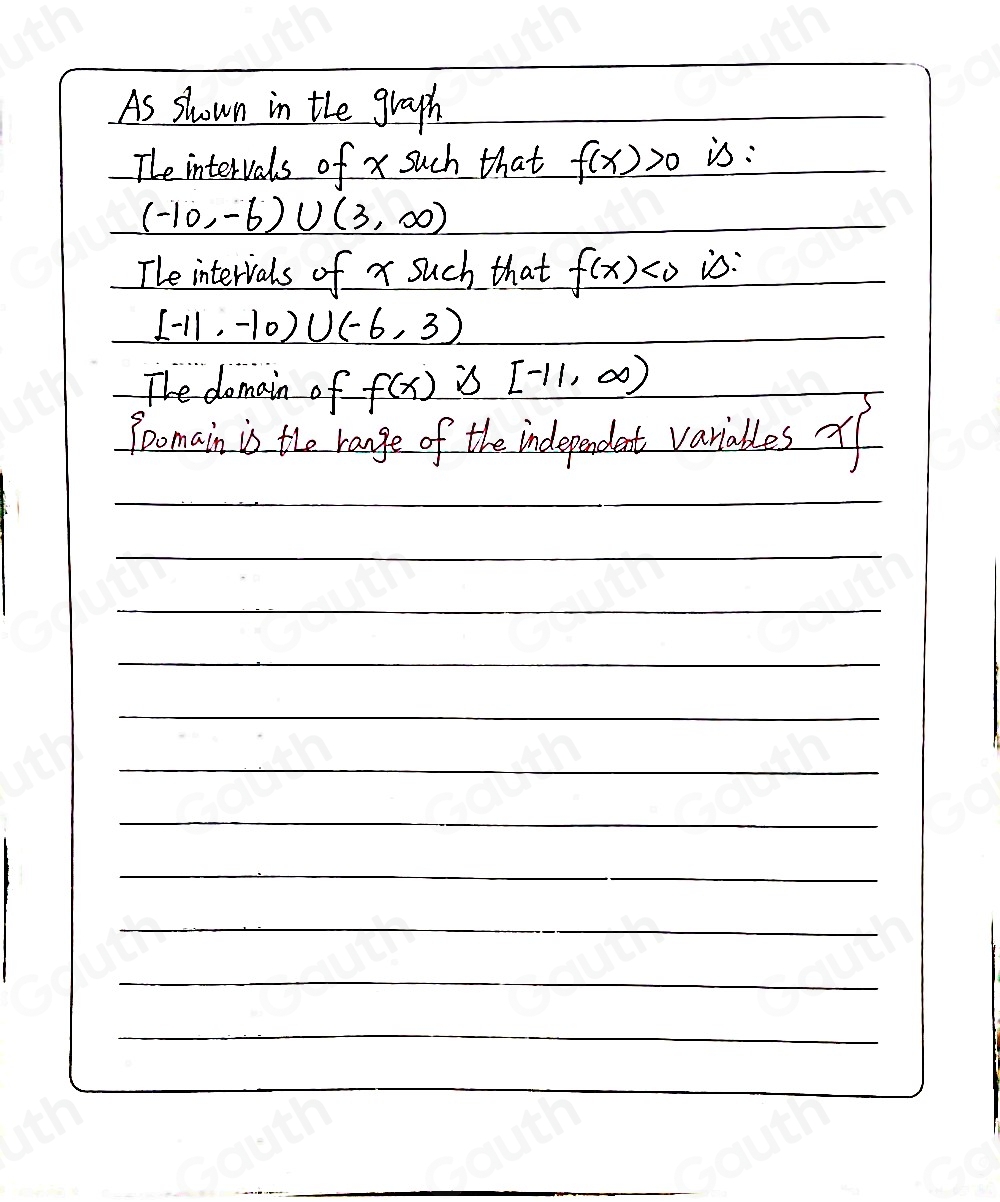 As shown in the graph
The intervals of x such that f(x)>0 is:
(-10,-6)∪(3, ∞)
The intervals of x such that f(x)<0 is:
[-11,-10)∪(-6,3)
The domain of f(x) is [-11, ∞)
{Domain is the range of the independent variables x}